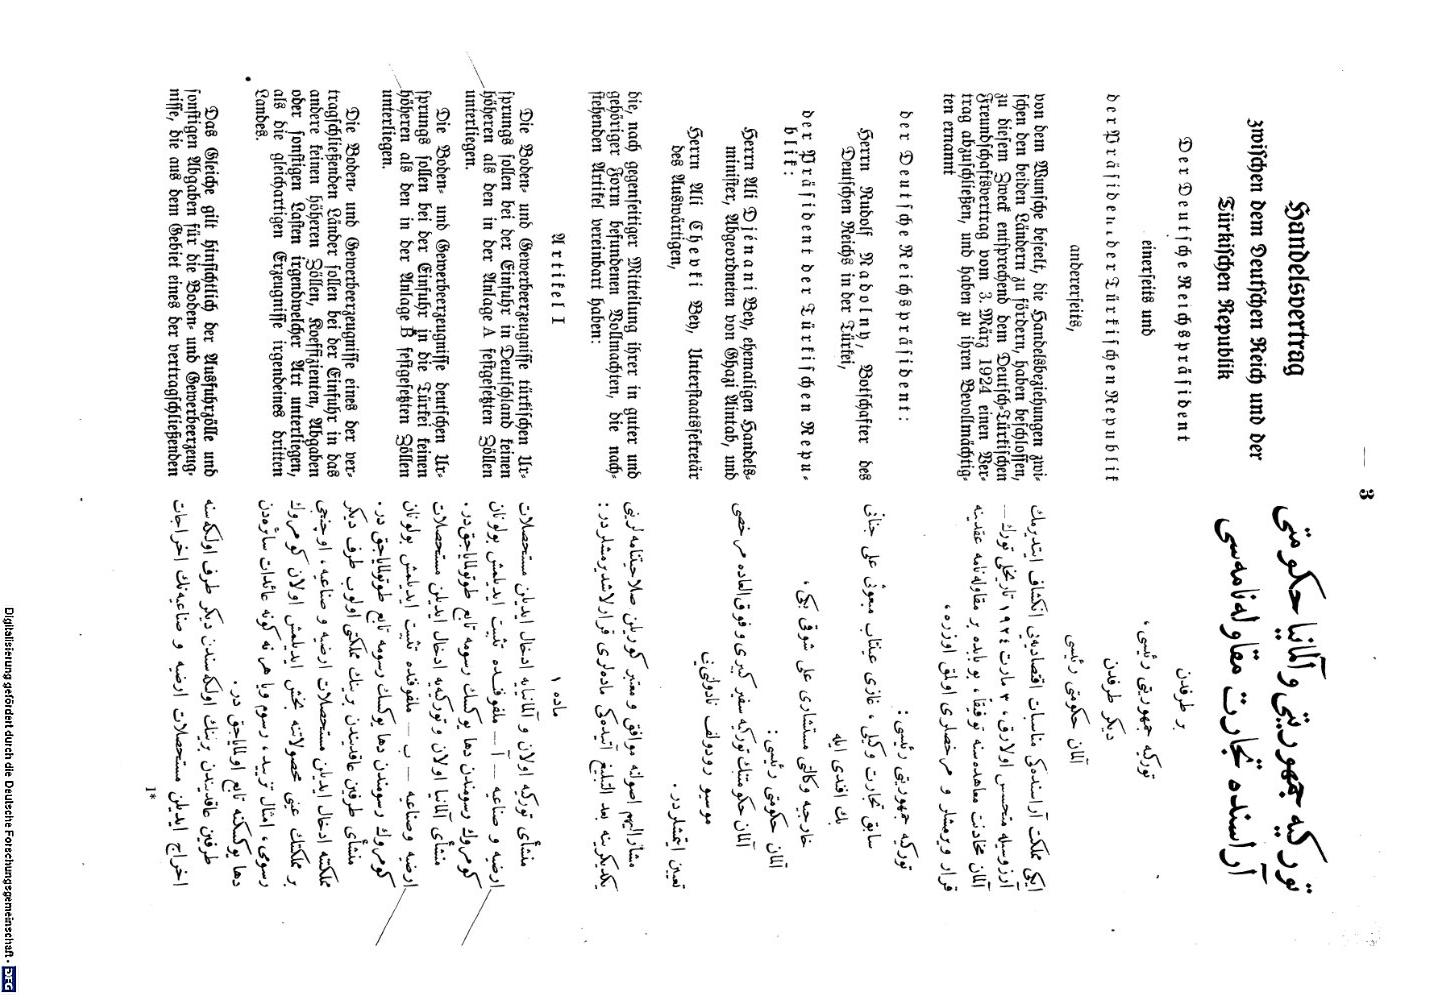 — 3
Handelsvertrag
zwischen dem Deutschen Reich und der
Türkischen Republik
Der Deutsche Reichspräsident
einerseits und
der Präsident der Türkischen Republik
andererseits,
von dem Wunsche beseelt, die Handelsbeziehungen zwi-
schen den beiden Ländern zu fördern, haben beschlossen,
zu diesem Zweck entsprechend dem Deutsch-Türkischen
Freundschaftsvertrag vom 3. März 1924 einen Ver-
trag abzuschließen, und haben zu ihren Bevollmächtig-
ten ernannt
der Deutsche Reichspräsident:
Herrn Rudolf Nadolny, Botschafter des
Deutschen Reichs in der Türkei,
der Präsident der Türkischen Repu-
blik:
Herrn Ali Djénani Bey, ehemaligen Handels-
minister, Abgeordneten von Ghazi Aintab, und
Herrn Ali Chevki Bey, Unterstaatssekretär
des Auswärtigen,
die, nach gegenseitiger Mitteilung ihrer in guter und
gehöriger Form befundenen Vollmachten, die nach-
stehenden Artikel vereinbart haben:
Artikel I
Die Boden- und Gewerbeerzeugnisse türkischen Ur-
sprungs sollen bei der Einfuhr in Deutschland keinen
höheren als den in der Anlage A festgesetzten Zöllen
unterliegen.
Die Boden- und Gewerbeerzeugnisse deutschen Ur-
sprungs sollen bei der Einfuhr in die Türkei keinen
höheren als den in der Anlage B festgesetzten Zöllen
unterliegen.
Die Boden- und Gewerbeerzeugnisse eines der ver-
tragschließenden Länder sollen bei der Einfuhr in das
andere keinen höheren Zöllen, Koeffizienten, Abgaben
oder sonstigen Lasten irgendwelcher Art unterliegen,
als die gleichartigen Erzeugnisse irgendeines dritten
Landes.
Das Gleiche gilt hinsichtlich der Ausfuhrzölle und
sonstigen Abgaben für die Boden- und Gewerbeerzeug-
nisse, die aus dem Gebiet eines der vertragschließenden
توركیه جمهوریتی و آلمانیا حكومتی
آراسنده تجارت مقاوله‌نامه‌سی
بر طرفدن
توركیه جمهوریتی رئیسی ،
دیكر طرفدن
آلمان حكومتی رئیسی
ایكی مملكت آراسنده‌كی مناسبات اقتصادیه‌یی انكشاف ایتدیرمك
آرزوسیله متحسس اولارق ، ٣ مارت ١٩٢٤ تاریخلی تورك —
آلمان مخادنت معاهده‌سنه توفیقاً ، بو بابده بر مقاوله‌نامه عقدینه
قرار ویرمشلر و مرخصلری اولمق اوزره ،
توركیه جمهوریتی رئیسی :
سابق تجارت وكیلی ، غازی عینتاب مبعوثی علی جنانی
بك افندی ایله
خارجیه وكالتی مستشاری علی شوقی بكی ،
آلمان حكومتی رئیسی :
آلمان حكومتنك توركیه سفیر كبیری و فوق العاده مرخصی
موسیو رودولف نادولنی‌یی
تعیین ایتمشلردر .
مشارالیهم اصولنه موافق و معتبر كوریلن صلاحیتنامه‌لرینی
یكدیكرینه بعد التبلیغ آتیده‌كی ماده‌لری قرارلاشدیرمشلردر :
ماده ١
منشأی توركیه اولان و آلمانیایه ادخال ایدیلن مستحصلات
ارضیه و صناعیه — آ — ملفوفنده تثبیت ایدیلمش بولونان
كومروك رسومندن دها یوكسك رسومه تابع طوتولمایاجقدر .
منشأی آلمانیا اولان و توركیه‌یه ادخال ایدیلن مستحصلات
ارضیه وصناعیه — ب — ملفوفنده تثبیت ایدیلمش بولونان
كومروك رسومندن دها یوكسك رسومه تابع طوتولمایاجقدر .
منشأی طرفین عاقدیندن برینك مملكتی اولوب طرف دیكر
مملكتنه ادخال ایدیلن مستحصلات ارضیه و صناعیه ، اوچنجی
بر مملكتك عینی محصولاتنه تحمیل ایدیلمش اولان كومروك
رسومی ، امثال تزیید ، رسوم ویا هر نه كونه عائدات سائره‌دن
دها یوكسكنه تابع اولمایاجقدر .
طرفین عاقدیندن برینك اولكه‌سندن دیكر طرف اولكه‌سنه
اخراج ایدیلن مستحصلات ارضیه و صناعیه‌نك اخراجات
1*
Digitalisierung gefördert durch die Deutsche Forschungsgemeinschaft - DFG